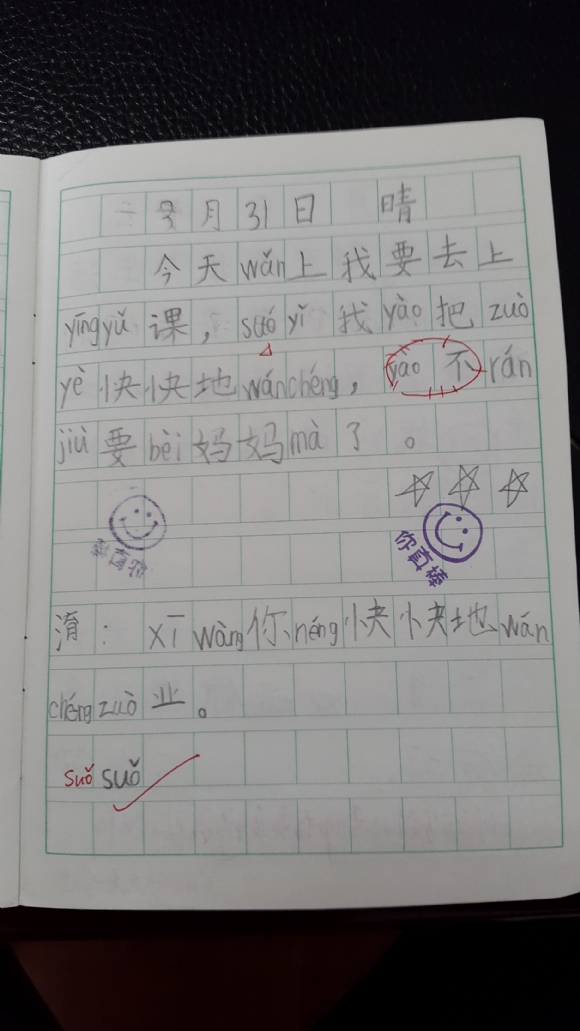 3月31日 晴
今天wǎn上我要去上
yīngyǔ课，suó yǐ 我 yào 把 zuò
yè 快快地 wánchéng， yào 不 rán
jiù 要 bèi 妈妈 mà 了。
你真棒 你真棒
淯：xī wàng 你 néng 快快地 wán
chéng zuò 业。
suǒ suǒ